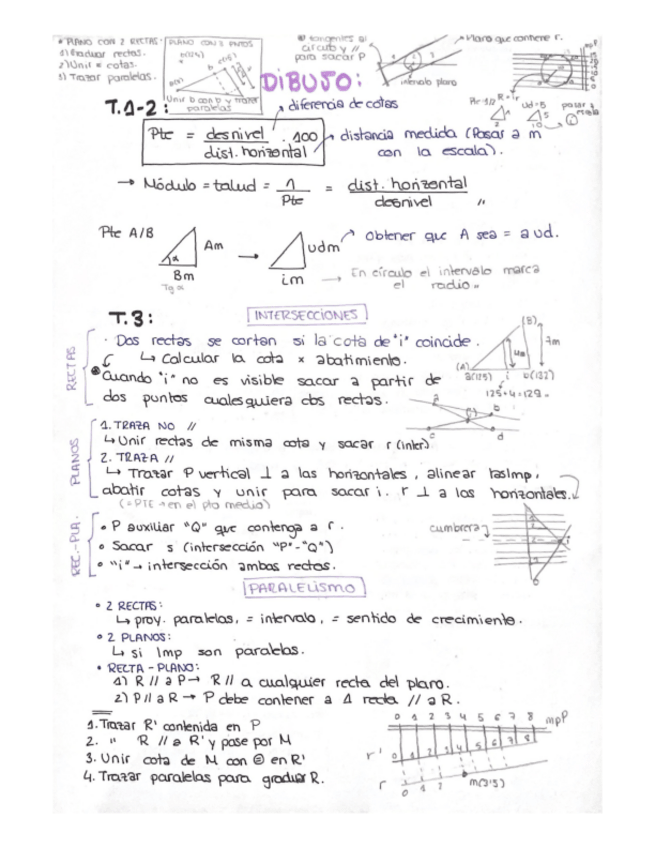 * PLANO CON 2 RECTAS:
1) Graduar rectas.
2) Unir = cotas.
3) Trazar paralelas.
PLANO CON 3 PUNTOS
Unir b con b y trazar
paralelas
tangentes al
círculo y //
para sacar P
intervalo plano
Plano que contiene r.
DIBUJO:
T.1-2:
diferencia de cotas
Pte = desnivel . 100
dist. horizontal
distancia medida (Pasar a m
con la escala).
→ Módulo = talud = 1 = dist. horizontal
Pte desnivel "
Pte A/B
Am
Bm
Tg α
udm
im
Obtener que A sea = a ud.
→ En círculo el intervalo marca
el radio
T.3:
INTERSECCIONES
RECTAS
· Dos rectas se cortan si la cota de "i" coincide.
↳ Calcular la cota x abatimiento.
Cuando "i" no es visible sacar a partir de
dos puntos cualesquiera dos rectas.
(B)
7m
4m
(A)
a(125) i b(132)
125+4=129
PLANOS
1. TRAZA NO //
↳ Unir rectas de misma cota y sacar r (inter)
2. TRAZA //
↳ Trazar P vertical ⊥ a las horizontales, alinear las lmp,
abatir cotas y unir para sacar i. r ⊥ a las horizontales.
(=PTE → en el pto medio)
REC.-PLA.
• P auxiliar "Q" que contenga a r.
• Sacar s (intersección "P"-"Q")
• "i" → intersección ambas rectas.
cumbrera
PARALELISMO
• 2 RECTAS:
↳ proy. paralelas, = intervalo, = sentido de crecimiento.
• 2 PLANOS:
↳ si lmp son paralelas.
• RECTA - PLANO:
1) R // a P → R // a cualquier recta del plano.
2) P // a R → P debe contener a 1 recta // a R.
1. Trazar R' contenida en P
2. " R // a R' y pase por M
3. Unir cota de M con = en R'
4. Trazar paralelas para graduar R.
0 1 2 3 4 5 6 7 8 mpP
r' 0 1 2 3 4 5 6 7 8
r 0 1 2 m(3'5)